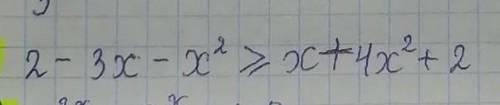 2 - 3x - x² ⩾ x + 4x² + 2